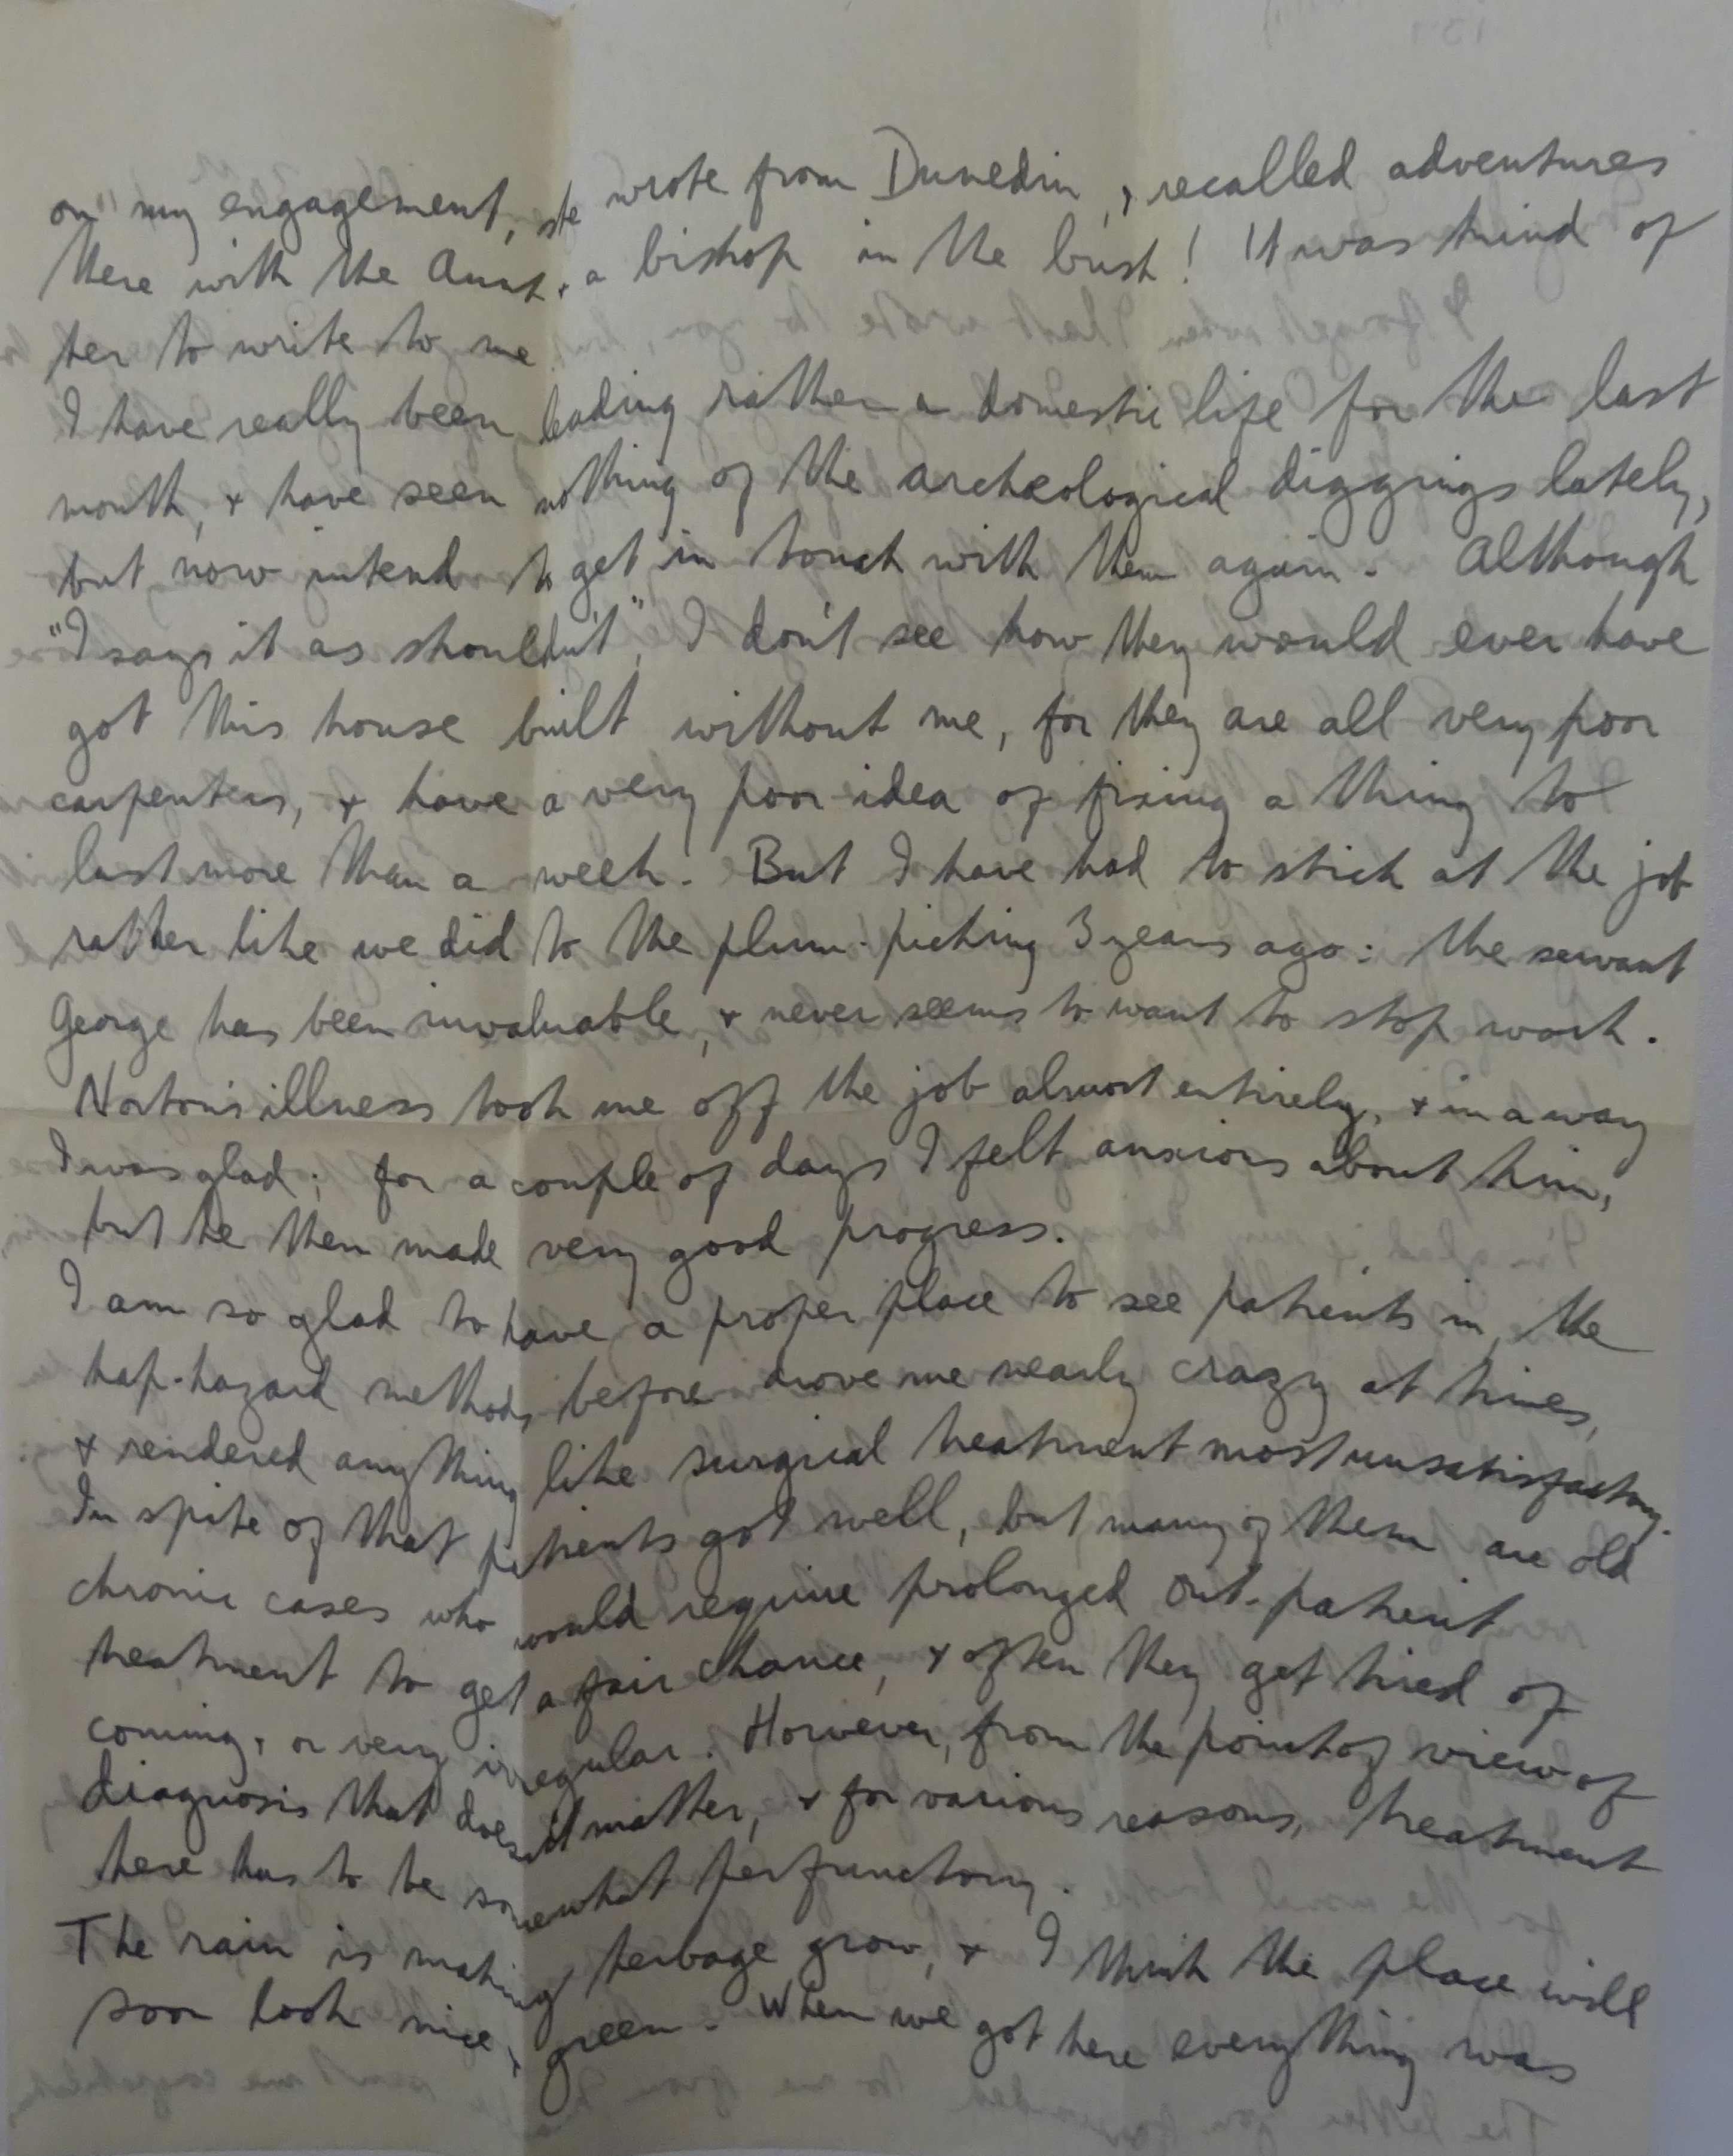 on my engagement, she wrote from Dunedin, & recalled adventures
there with the Aunt & a bishop in the bush! It was kind of
her to write to me
I have really been leading rather a domestic life for the last
month, & have seen nothing of the archeological diggings lately,
but now intend to get in touch with them again. Although
"I says it as shouldn't", I don't see how they would ever have
got this house built without me, for they are all very poor
carpenters, & have a very poor idea of fixing a thing to
last more than a week. But I have had to stick at the job
rather like we did to the plum-picking 3 years ago: the servant
George has been invaluable, & never seems to want to stop work.
Norton's illness took me off the job almost entirely, & in a way
I was glad; for a couple of days I felt anxious about him,
but he then made very good progress.
I am so glad to have a proper place to see patients in, the
hap-hazard methods before drove me nearly crazy at times,
& rendered anything like surgical treatment most unsatisfactory.
In spite of that patients got well, but many of them are old
chronic cases who would require prolonged out-patient
treatment to get a fair chance, & often they get tired of
coming, or very irregular. However, from the point of view of
diagnosis that doesn't matter, & for various reasons, treatment
here has to be somewhat perfunctory.
The rain is making herbage grow, & I think the place will
soon look nice & green. When we got here everything was